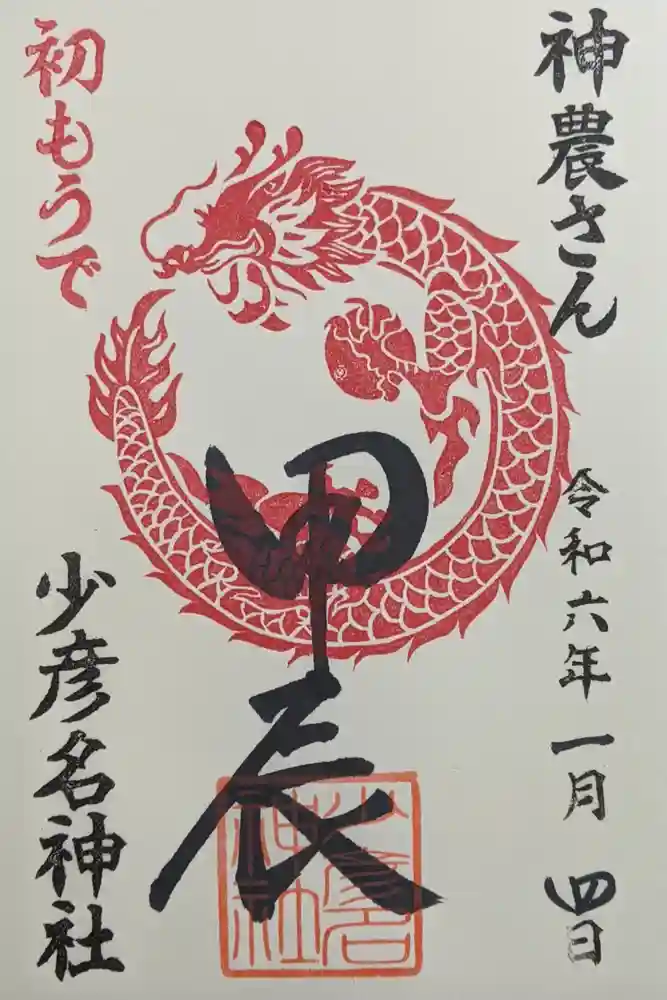 神農さん
令和六年一月四日
甲辰
少彦名神社
初もうで
少彦名神社